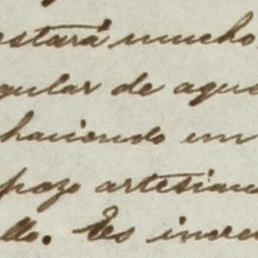 estará mucho
gular de ague
haciendo un
pozo artesian
llo. Es incre